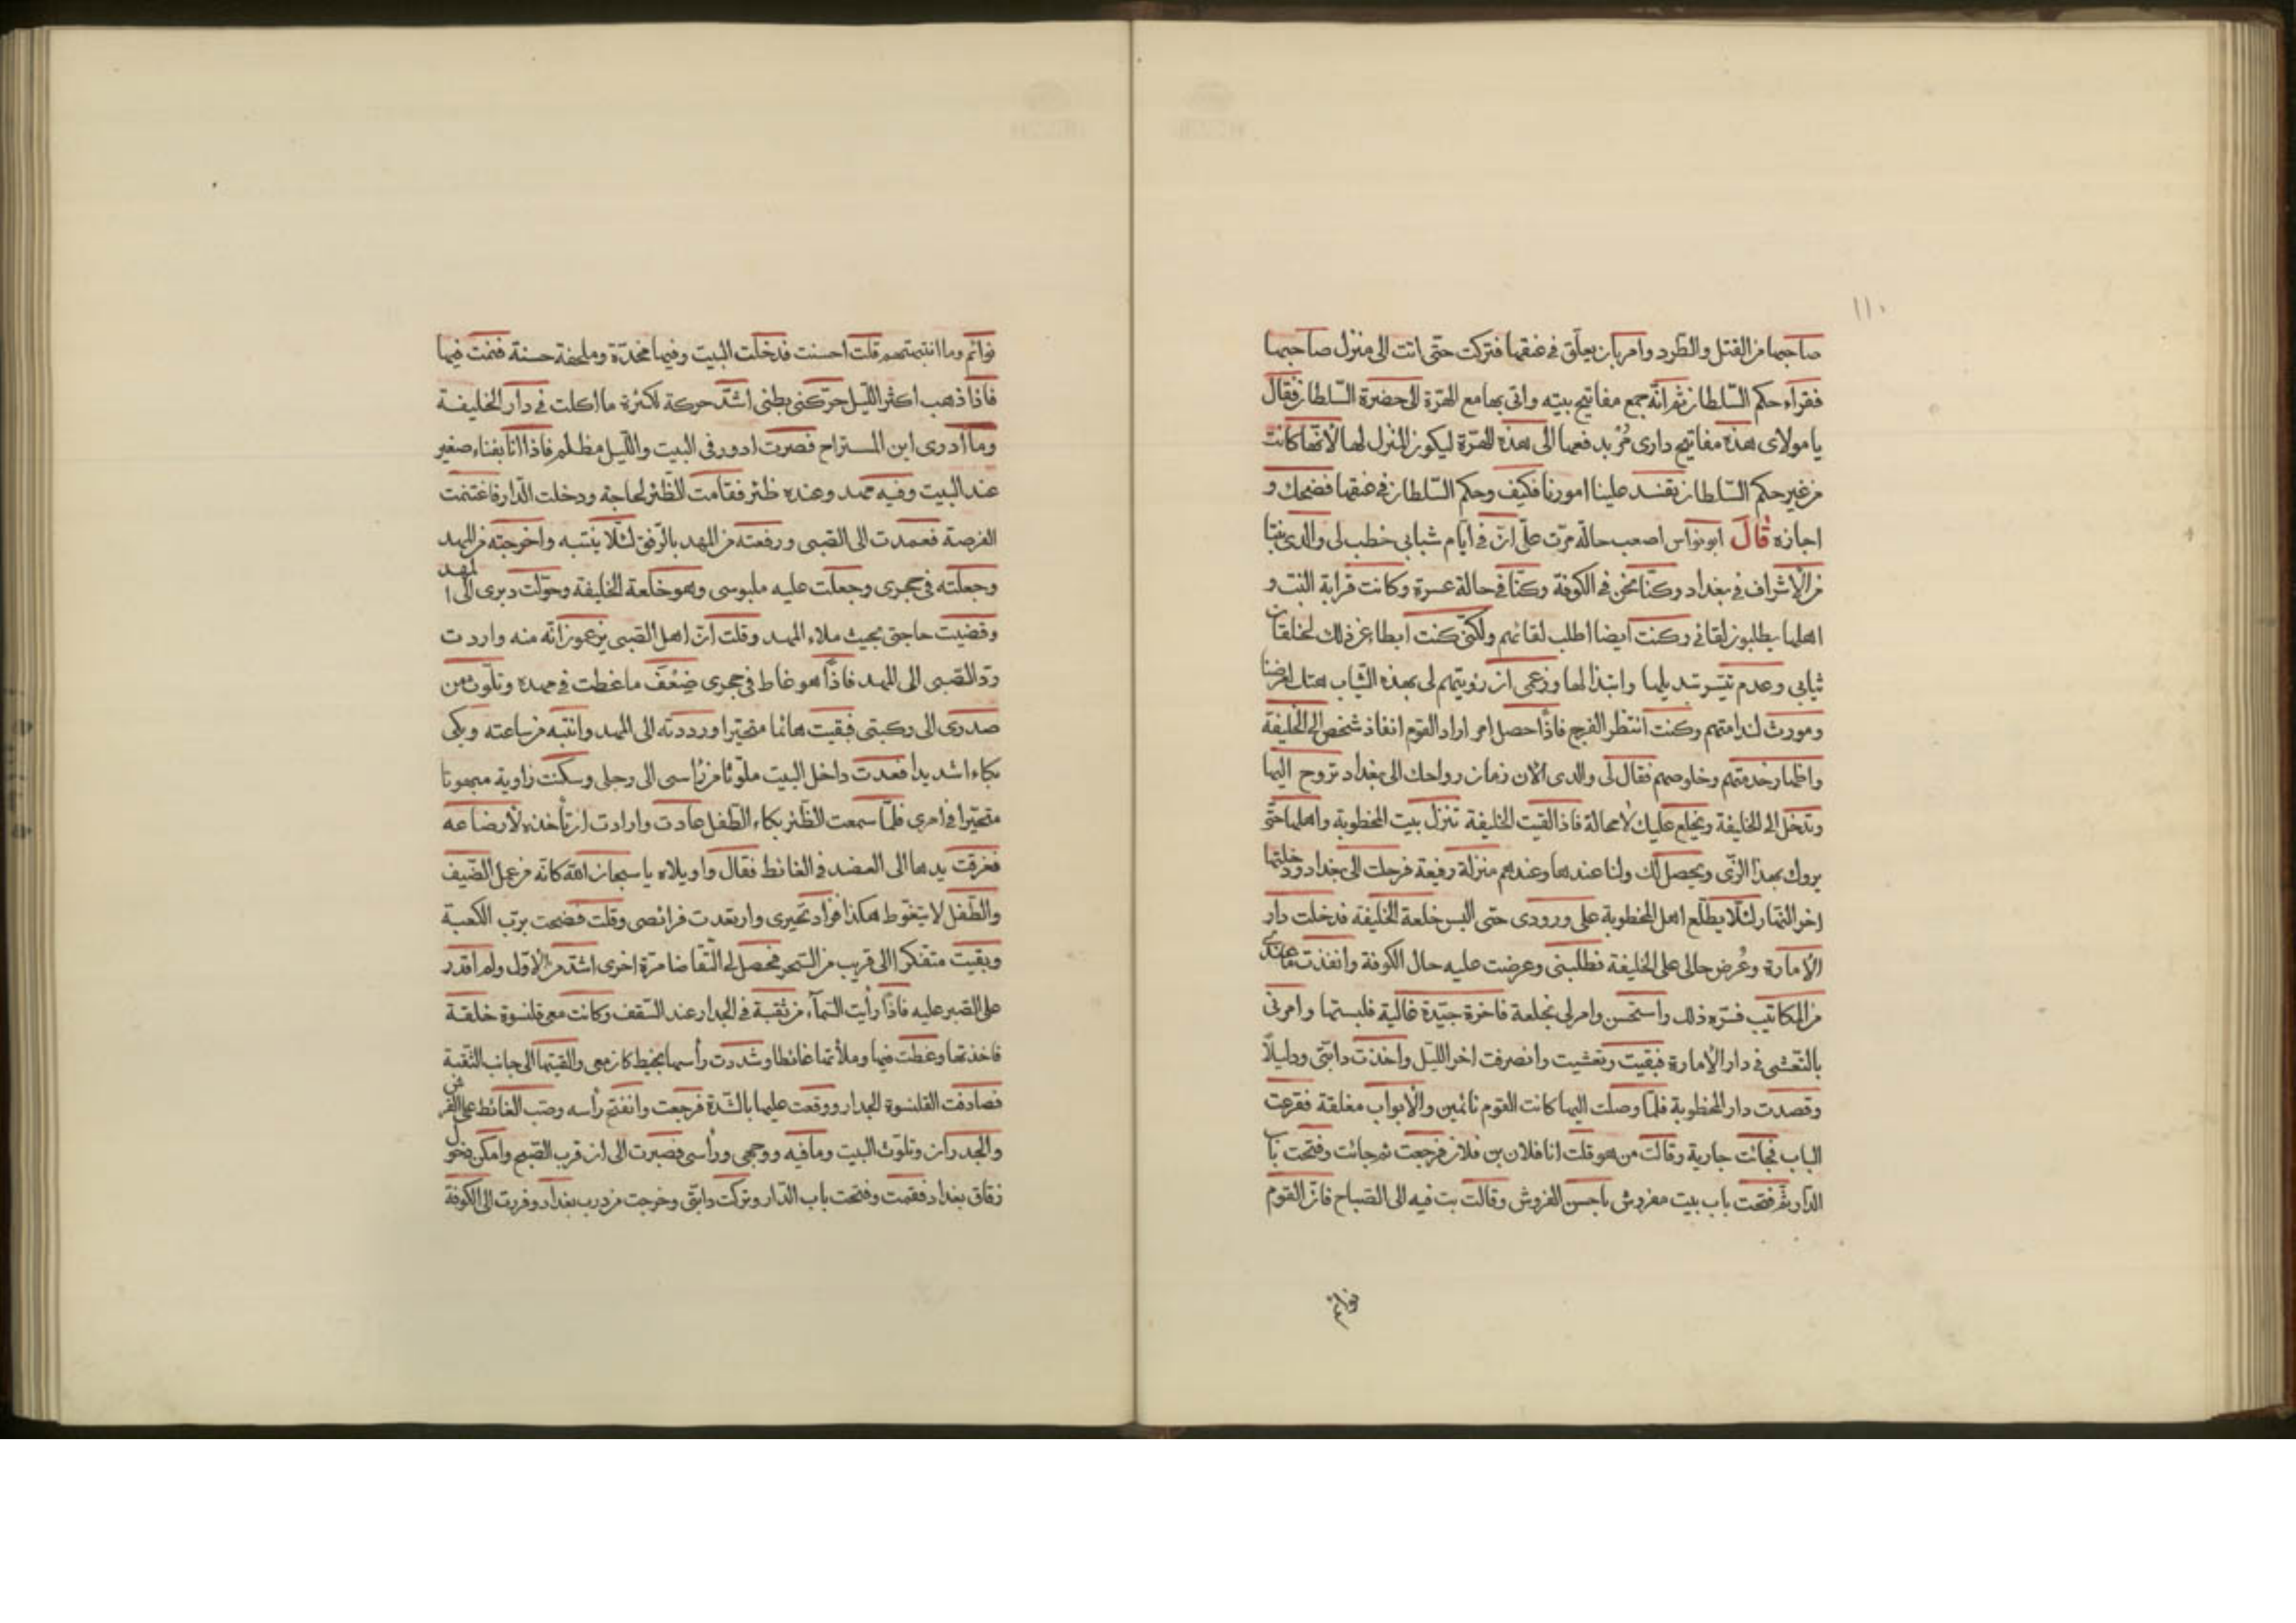 ١١٠
صاحبها من القتل والطرد وامر بان يعلّق في عنقها فتركت حتى اتت الى منزل صاحبها
فقراء حكم السّلطان ثم انّه جمع مفاتيح بيته واتى بها مع الهرّة الى حضرة السّلطان فقال
يا مولاى هذه مفاتيح دارى مُر بدفعها الى هذه الهرّة ليكون المنزل لها لانّها كانت
من غير حكم السّلطان تفسد علينا امورنا فكيف وحكم السّلطان في عنقها فضحك و
اجازه قال ابو نواس اصعب حالة مرّت علىّ انّ في ايّام شبابى خطب لى والدى بنتا
من الاشراف في بغداد وكنّا نحن في الكوفة وكنّا في حالة عسرة وكانت قرابة البنت و
اهلها يطلبون لقائى وكنت ايضا اطلب لقائهم ولكنّى كنت ابطاء عن ذلك لخلقات
ثيابى وعدم تيسّر تبديلها وابتذالها وزعمى ان رؤيتهم لى بهذه الثّياب هتك لعرضنا
ومورث لندامتهم وكنت انتظر الفرج فاذا حصل امر اراد القوم انفاذ شخص الى الخليفة
واظهار خدمتهم وخلوصهم فقال لى والدى الان زمان رواحك الى بغداد تروح اليها
وتدخل الى الخليفة ويخلع عليك لا محالة فاذا لقيت الخليفة تنزل بيت المخطوبة واهلها حتّى
يروك بهذا الزّى ويحصل لك ولنا عندها وعندهم منزلة رفيعة فرحلت الى بغداد ودخلتها
اخر النّهار لئلّا يطّلع اهل المخطوبة على ورودى حتى البس خلعة الخليفة فدخلت دار
الامارة وعُرض حالى على الخليفة فطلبنى وعرضت عليه حال الكوفة وانفذت ما عندى
من المكاتيب فسّره ذلك واستحسن وامر لى بخلعة فاخرة جيّدة غالية فلبستها وامرنى
بالتّعشى في دار الامارة فبقيت وتعشيت وانصرفت اخر الليل واخذت دابّتى ودليلًا
وقصدت دار المخطوبة فلمّا وصلت اليها كانت القوم نائمين والابواب مغلقة فقرعت
الباب فجائت جارية وقالت من هو قلت انا فلان بن فلان فرجعت ثم جائت وفتحت باب
الدّار ثم فتحت باب بيت مفروش باحسن الفروش وقالت بت فيه الى الصّباح فانّ القوم
نوائم
نوائم وما انتبهتهم قلت احسنت فدخلت البيت وفيها مخدّة وملحفة حسنة فنمت فيها
فاذا ذهب اكثر اللّيل حرّكنى بطنى اشدّ حركة لكثرة ما اكلت في دار الخليفة
وما أدرى اين المستراح فصرت ادور في البيت واللّيل مظلم فاذا انا بفناء صغير
عند البيت وفيه مهد وعنده ظئر فقامت الظئر لحاجة ودخلت الدّار فاغتنمت
الفرصة فعمدت الى الصّبى ورفعته من المهد بالرّفق لئلّا ينتبه واخرجته من المهد
وجعلته في حجرى وجعلت عليه ملبوسى وهو خلعة الخليفة وحوّلت دبرى الى المهد
وقضيت حاجتى بحيث ملاء المهد وقلت انّ اهل الصّبى يزعمون انّه منه واردت
ردّ الصّبى الى المهد فاذا هو غاط في حجرى ضِعْف ما غطت في مهده وتلوّث من
صدرى الى ركبتى فبقيت هائما متحيّرا ورددته الى المهد وانتبه من ساعته وبكى
بكاء اشديدا فعدت داخل البيت ملوّثا من رأسى الى رجلى وسكنت زاوية مبهوتا
متحيّرا في امرى فلمّا سمعت الظّئر بكاء الطّفل عادت وارادت ان تأخذه لارضاعه
فغرقت يدها الى العضد في الغائط فقال واويلاه يا سبحان الله كانّه من عمل الضّيف
والطّفل لا يتغوّط هكذا فزاد تحيرى وارتعدت فرائصى وقلت فضحت بربّ الكعبة
وبقيت متفكرا الى قريب من السّحر فحصل لى التّقاضا مرّة اخرى اشدّ من الاوّل ولم اقدر
على الصّبر عليه فاذا رأيت السّمآء من ثقبة في الجدار عند السّقف وكانت معى قلنسوة خلقة
فاخذتها وغطت فيها وملأتها غائطا وشددت رأسها بخيط كان معى والقيتها الى جانب الثّقبة
فصادفت القلنسوة الجدار ووقعت عليها بالشّدة فرجعت وانفتح رأسه وصبّ الغائط على الفرش
والجدران وتلوّث البيت وما فيه ووجهى ورأسى فصبرت الى ان قرب الصّبح وامكن دخول
زقاق بغداد فقمت وفتحت باب الدّار وتركت دابّتى وخرجت من درب بغداد وفررت الى الكوفة